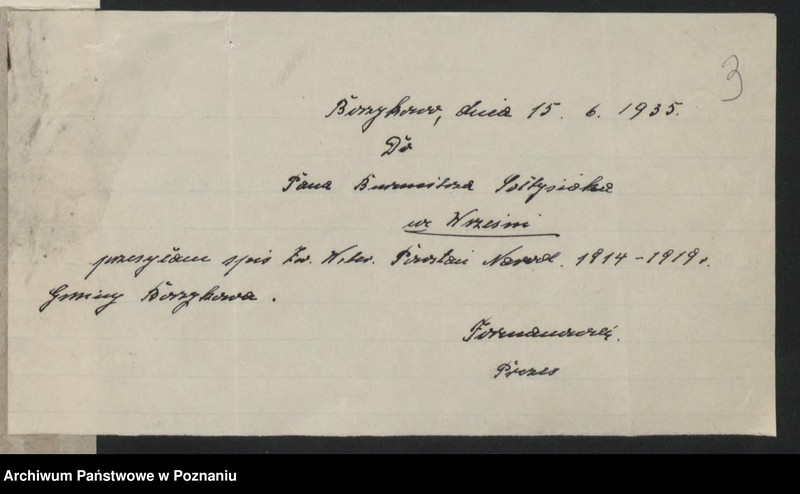 3
Borzykowo, dnia 15. 6. 1935.
Do
Pana Burmistrza Sołtysiaka
we Wrześni
przesyłam spis Zw. Wet. Powstań Narod. 1914-1919 r.
Gminy Borzykowa.
Prezes
Archiwum Państwowe w Poznaniu